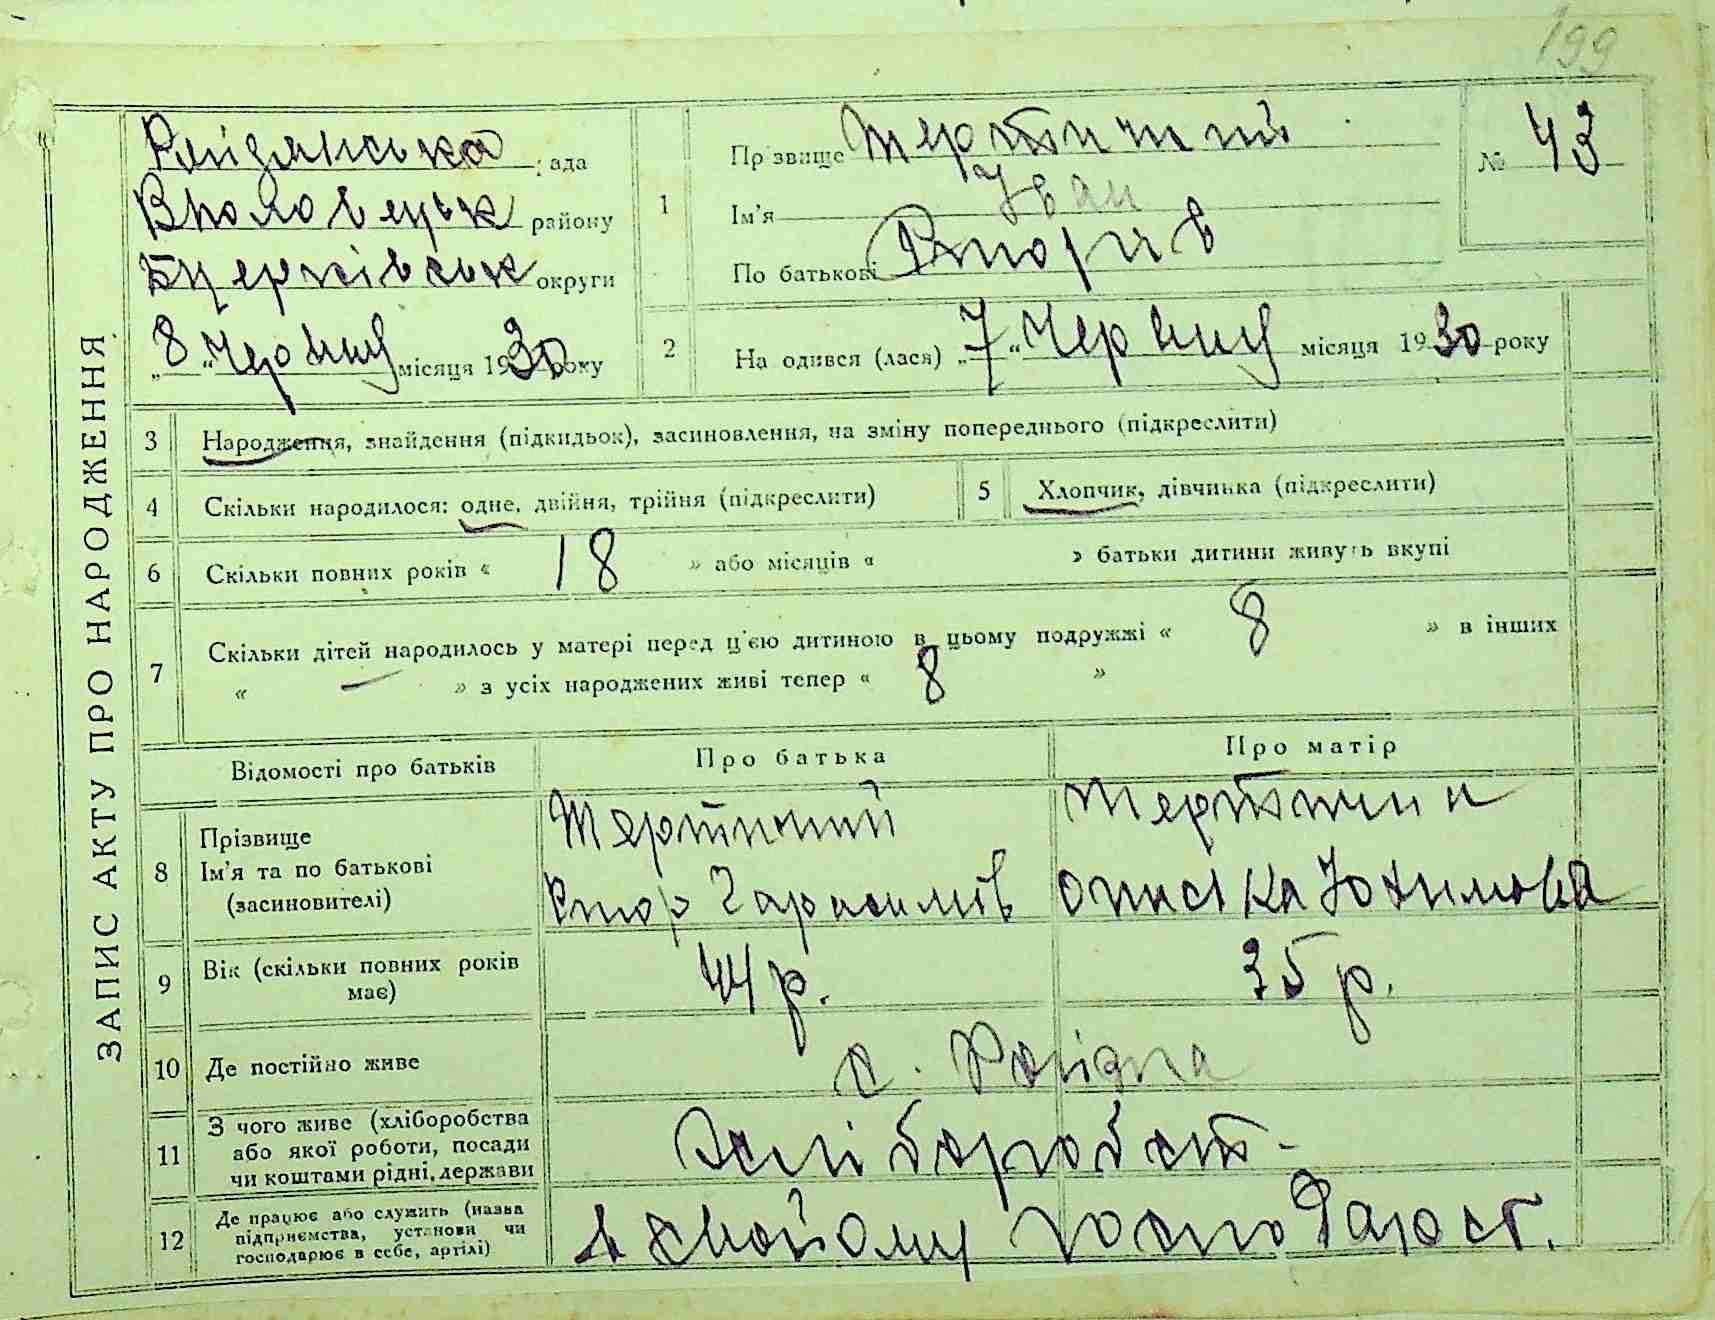 199
ЗАПИС АКТУ ПРО НАРОДЖЕННЯ
рада
району
Бцерківськ округи
„8“ Червня місяця 1930 року
1
Прізвище Тертичний
Ім'я Іван
По батькові
№ 43
2
На одився (лася) „7“ Червня місяця 1930 року
3 Народження, знайдення (підкидьок), засиновлення, на зміну попереднього (підкреслити)
4 Скільки народилося: одне, двійня, трійня (підкреслити)
5 Хлопчик, дівчинка (підкреслити)
6 Скільки повних років « 18 » або місяців « » батьки дитини живуть вкупі
7 Скільки дітей народилось у матері перед ц'єю дитиною в цьому подружжі « 8 » в інших
« — » з усіх народжених живі тепер « 8 »
Відомості про батьків
Про батька
Про матір
8 Прізвище
Ім'я та по батькові
(засиновителі)
Тертичний
Гарасимов
Тертична
Юхимова
9 Вік (скільки повних років
має)
44 р.
35 р.
10 Де постійно живе
с.
11 З чого живе (хліборобства
або якої роботи, посади
чи коштами рідні, держави
Хліборобст-
12 Де працює або служить (назва
підприємства, установи чи
господарює в себе, артілі)
в свойому господарст.